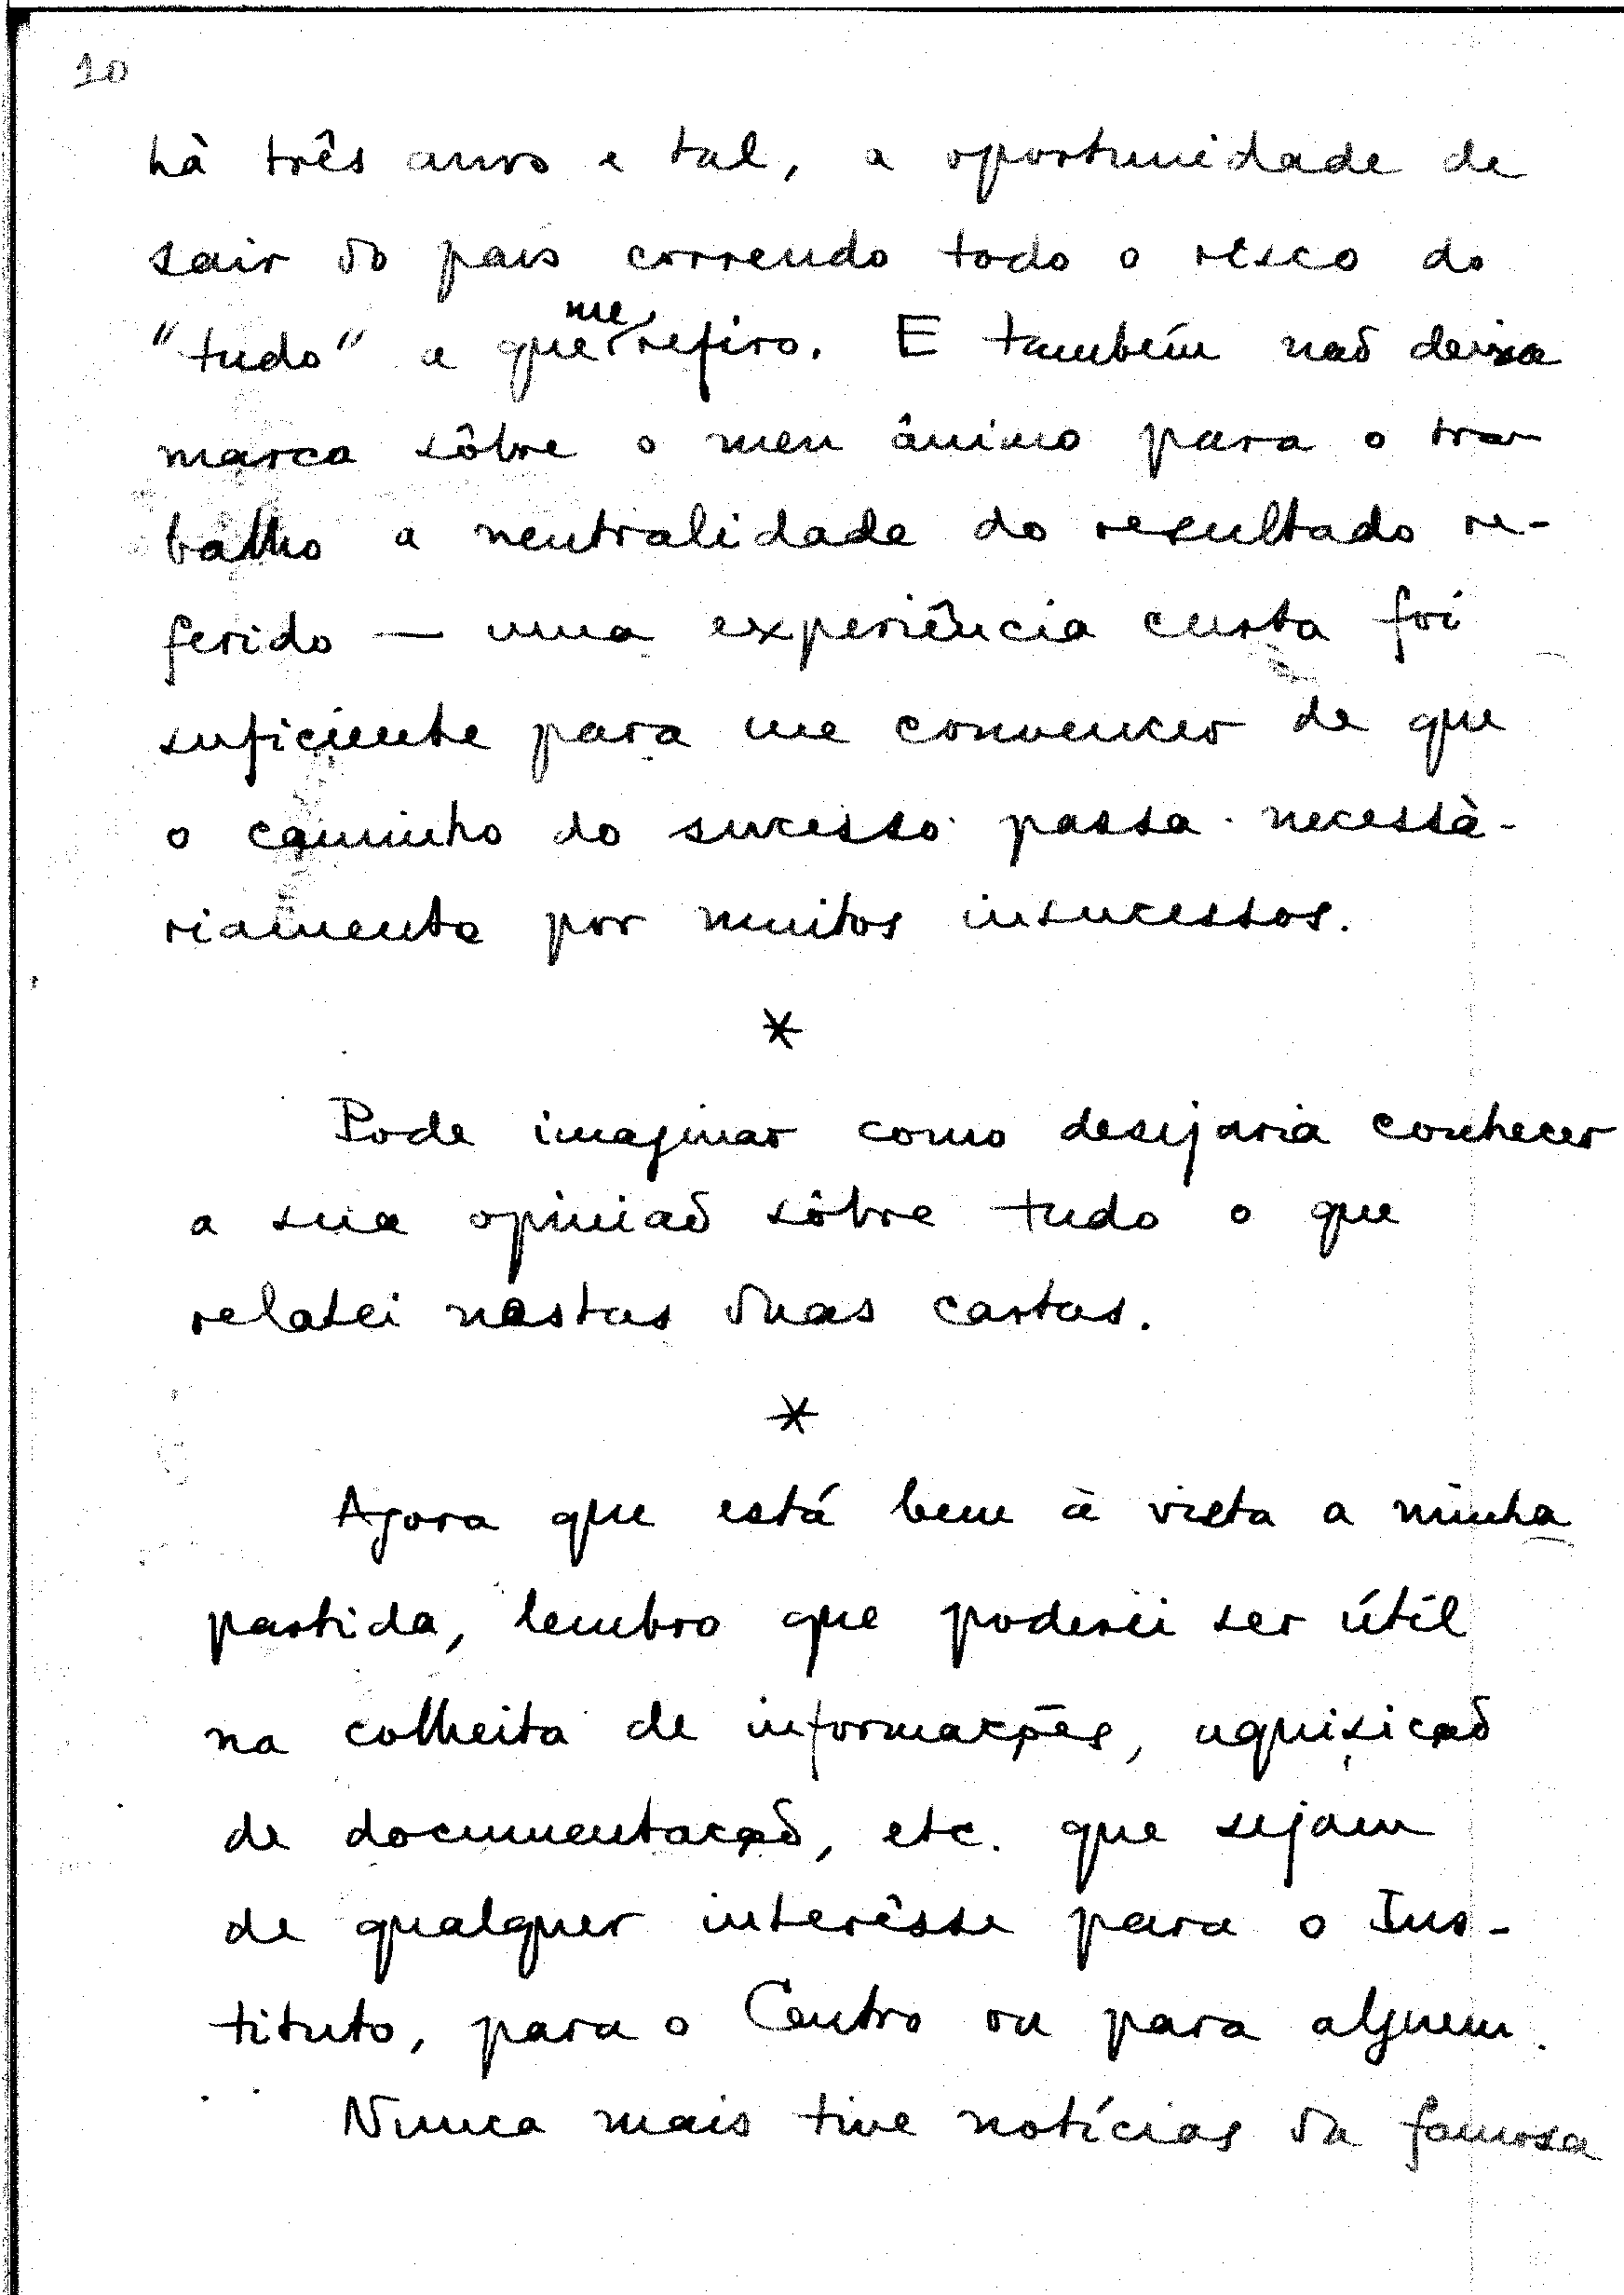 10
hà três anos e tal, a oportunidade de
sair do país correndo todo o risco do
"tudo" a que me refiro. E também não deixa
marca sôbre o meu ânimo para o tra-
balho a neutralidade do resultado re-
ferido — uma experiência curta foi
suficiente para me convencer de que
o caminho do sucesso passa necessà-
riamente por muitos insucessos.
*
Pode imaginar como desejaria conhecer
a sua opinião sôbre tudo o que
relatei nestas duas cartas.
*
Agora que está bem à vista a minha
partida, lembro que poderei ser útil
na colheita de informações, aquisição
de documentação, etc. que sejam
de qualquer interêsse para o Ins-
tituto, para o Centro ou para alguem.
Nunca mais tive notícias da famosa